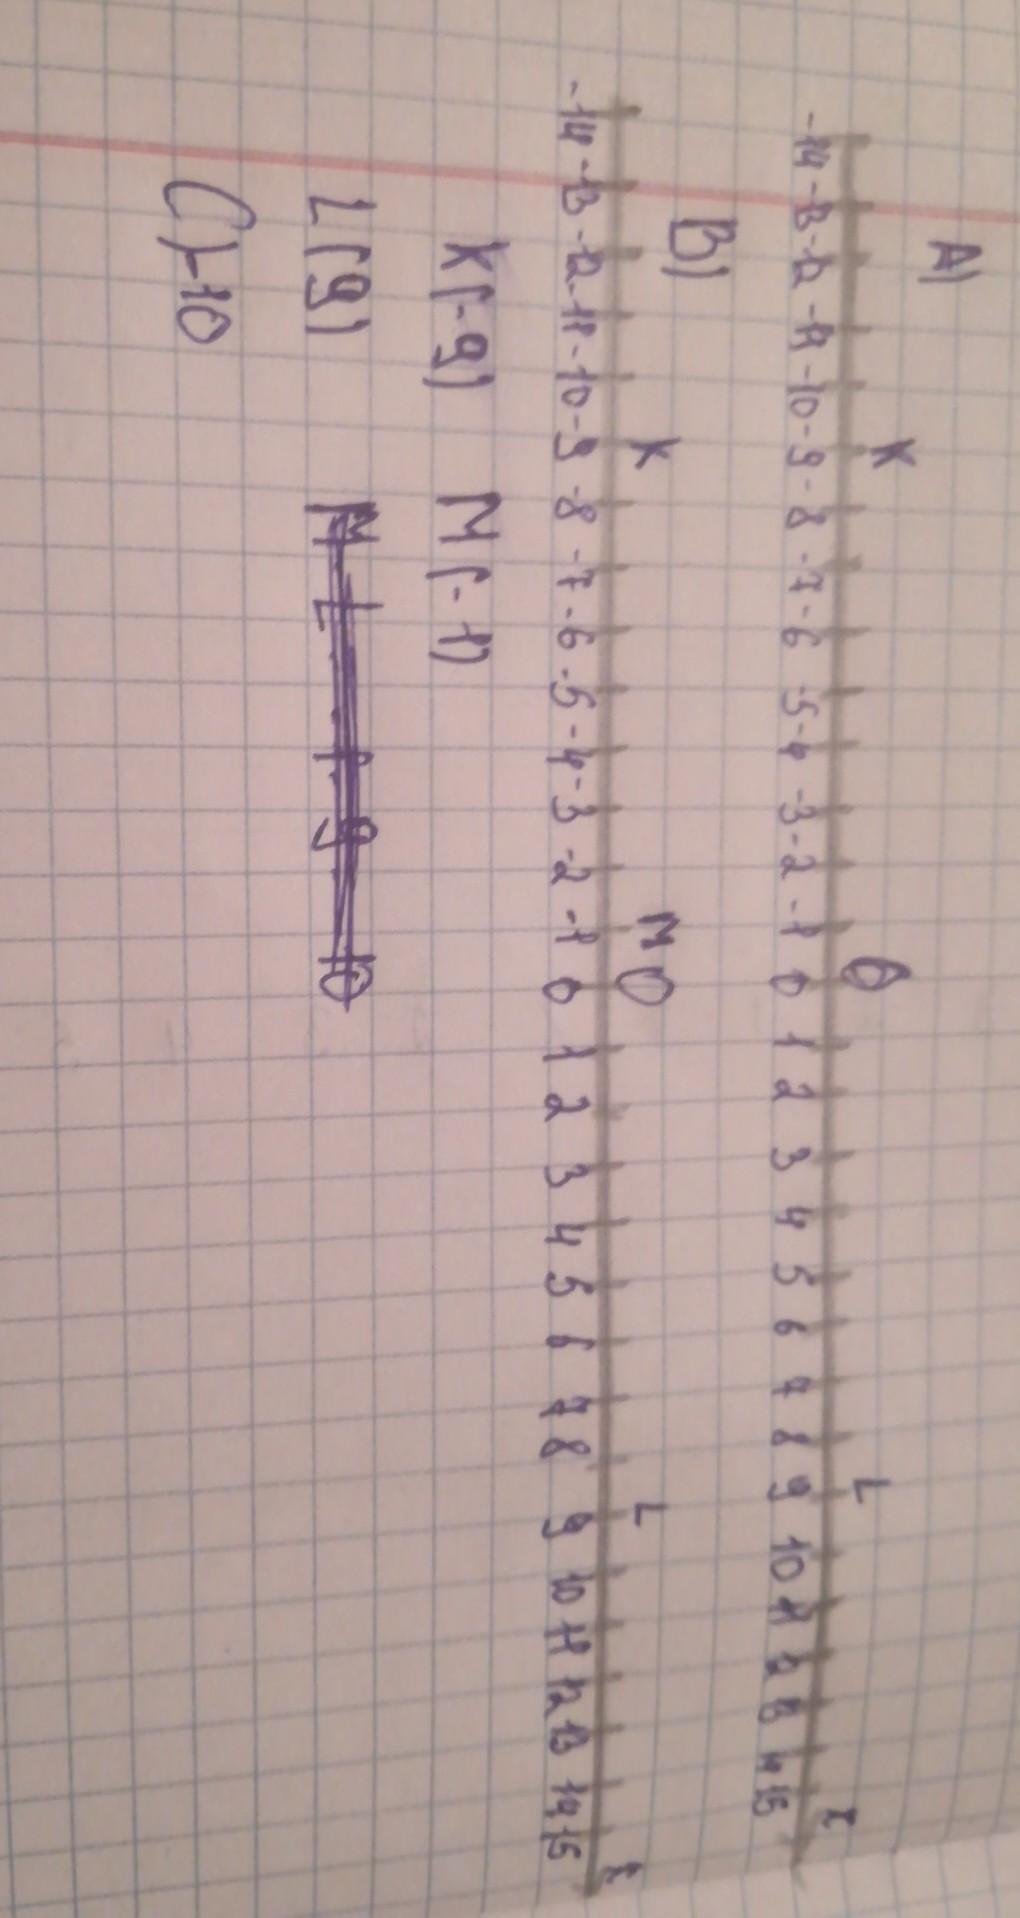 A)
K O L x
-14 -13 -12 -11 -10 -9 -8 -7 -6 -5 -4 -3 -2 -1 0 1 2 3 4 5 6 7 8 9 10 11 12 13 14 15
B)
K M O L x
-14 -13 -12 -11 -10 -9 -8 -7 -6 -5 -4 -3 -2 -1 0 1 2 3 4 5 6 7 8 9 10 11 12 13 14 15
K(-9) M(-1)
L(9)
C) -10